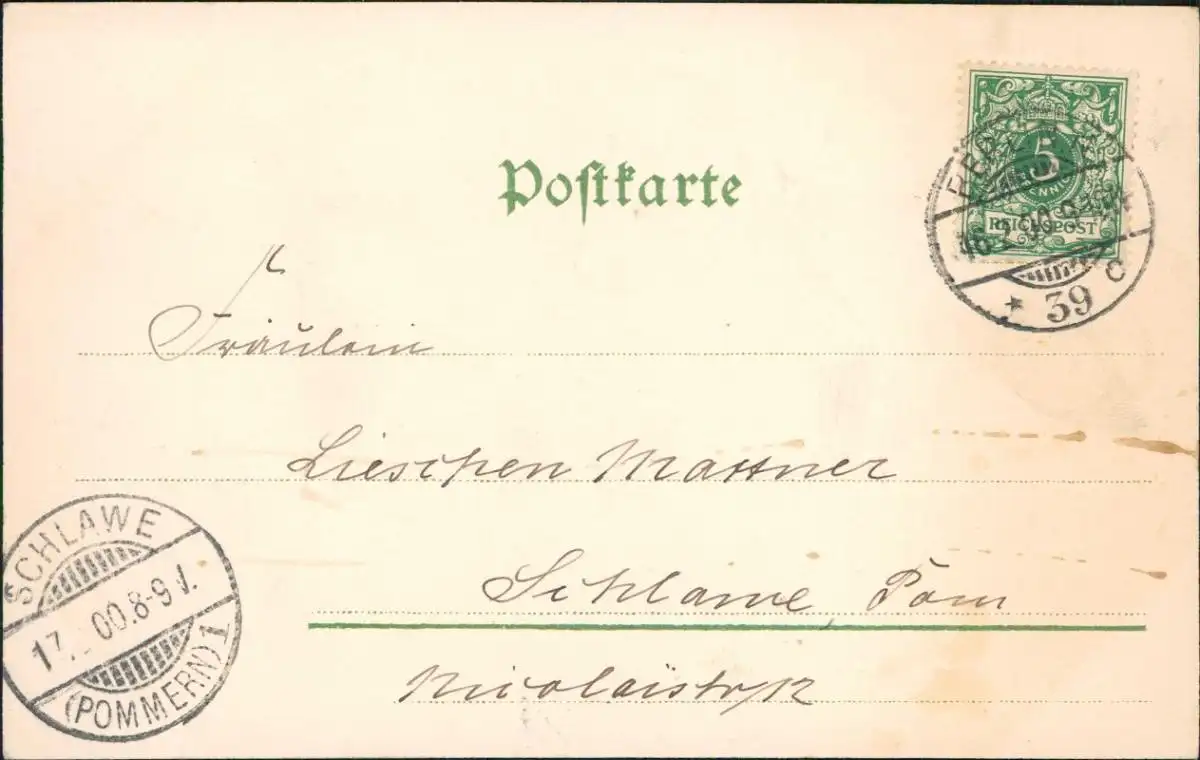 Postkarte
5
PFENNIG
REICHSPOST
BERLIN
* 39 c
Fräulein
Lieschen Mattner
Schlawe Pom
Nicolaistr
SCHLAWE
17. 00.8-9 V.
(POMMERN) 1